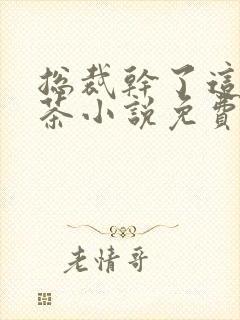 總裁幹了這
茶小說免費
老情哥